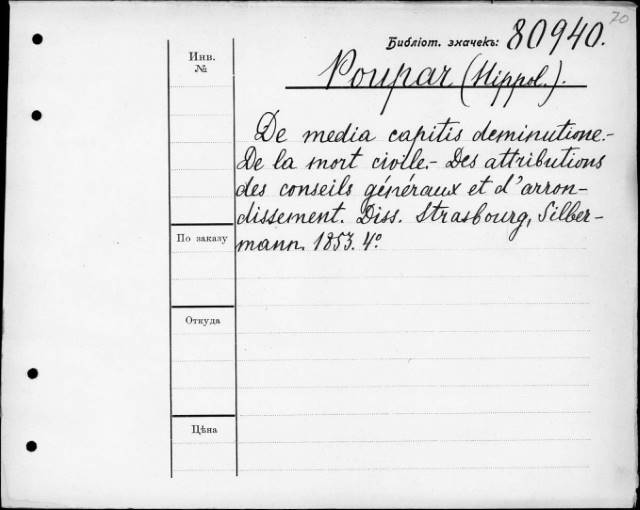 70
Библіот. значекъ: 80940.
Инв.
№
Poupar (Hippol.).
De media capitis deminutione.-
De la mort civile.- Des attributions
des conseils généraux et d'arron-
dissement. Diss. Strasbourg, Silber-
mann. 1853. 4°
По заказу
Откуда
Цѣна